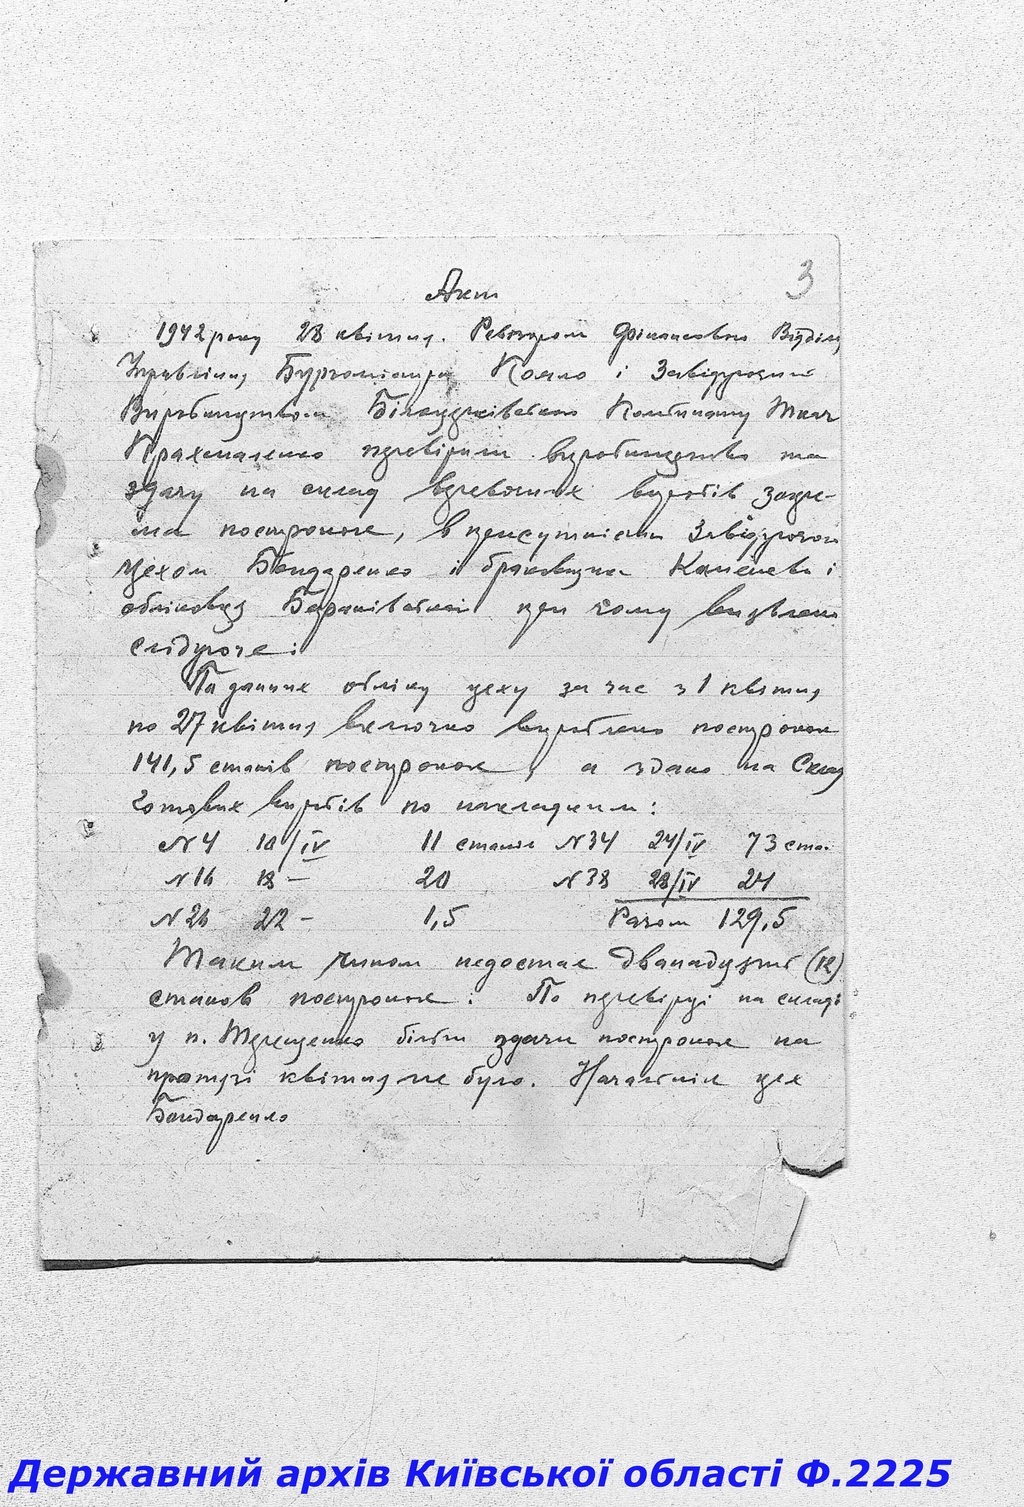 3
Акт
1942 року 28 квітня. Ревізором Фінансового Відділу
Управління Бургомістра і Завідуючий
Виробництвом Комбінату Ткач
Крахмаленко перевірили виробництво та
здачу на склад вірьовочних виробів зокре-
ма посторонок, в присутністи Завідуючого
Цехом Бондаренко і браковщика і
обліковця при чому виявлено
слідуюче:
По даних обліку цеху за час з 1 квітня
по 27 квітня включно вироблено посторонок
141,5 станів посторонок, а здано на Склад
Готових виробів по накладним:
N 4 10/IV 11 станів N 34 24/IV 73 ста.
N 16 18 — 20 N 38 28/IV 24
22 — 1,5 Разом 129,5
Таким чином недостає дванадцять (12)
станов посторонок. По перевірці на складі
у п. Терещенко більш здачи посторонок на
протязі квітня не було. Начальник цех
Бондаренко
Державний архів Київської області Ф.2225